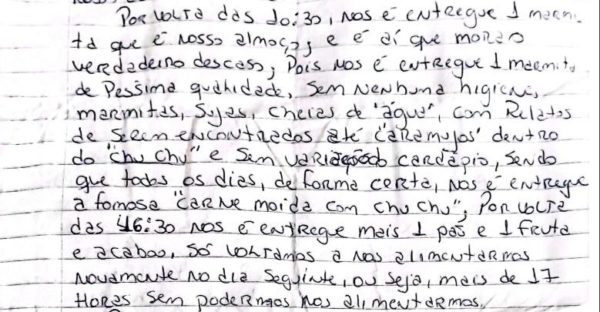 Por volta das 10:30, nos é entregue 1 marmi-
ta que é nosso almoço, e é aí que mora o
verdadeiro descaso, pois nos é entregue 1 marmita
de Pessima qualidade, sem nenhuma higiene,
marmitas, sujas, cheias de "água", com relatos
de serem encontrados até "caramujos" dentro
do "chu chu" e sem variação cardápio, sendo
que todos os dias, de forma certa, nos é entregue
a famosa "carne moida com chu chu", por volta
das 16:30 nos é entregue mais 1 pão e 1 fruta
e acabou, só voltamos a nos alimentarmos
novamente no dia seguinte, ou seja, mais de 17
Horas sem podermos nos alimentarmos.